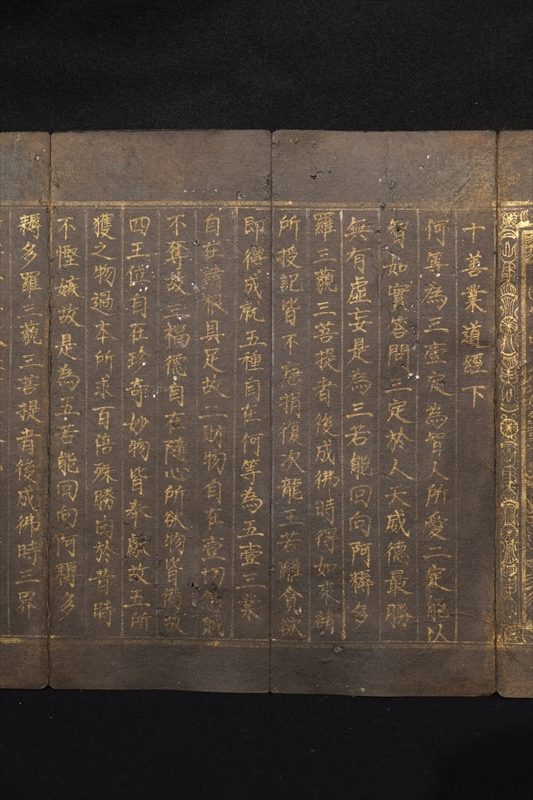 十善業道經下
何等為三壹定為智人所愛二定能以
智如實答問三定於人天威德最勝
無有虛妄是為三若能回向阿耨多
羅三藐三菩提者後成佛時得如來諸
所授記皆不唐捐復次龍王若離貪欲
即得成就五種自在何等為五壹三業
自在諸根具足故二財物自在壹切怨賊
不奪故三福德自在隨心所欲物皆備故
四王位自在珍奇妙物皆奉獻故五所
獲之物過本所求百倍殊勝由於昔時
不慳嫉故是為五若能回向阿耨多
耨多羅三藐三菩提者後成佛時三界